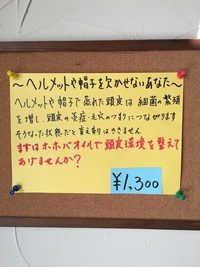 ～ヘルメットや帽子を欠かせないあなた～
ヘルメットや帽子で蒸れた頭皮は 細菌の繁殖
を増し、頭皮の炎症・毛穴のつまりにつながります
そうなった状態だと育毛剤はききません
まずはホホバオイルで頭皮環境を整えて
あげませんか？
¥1,300